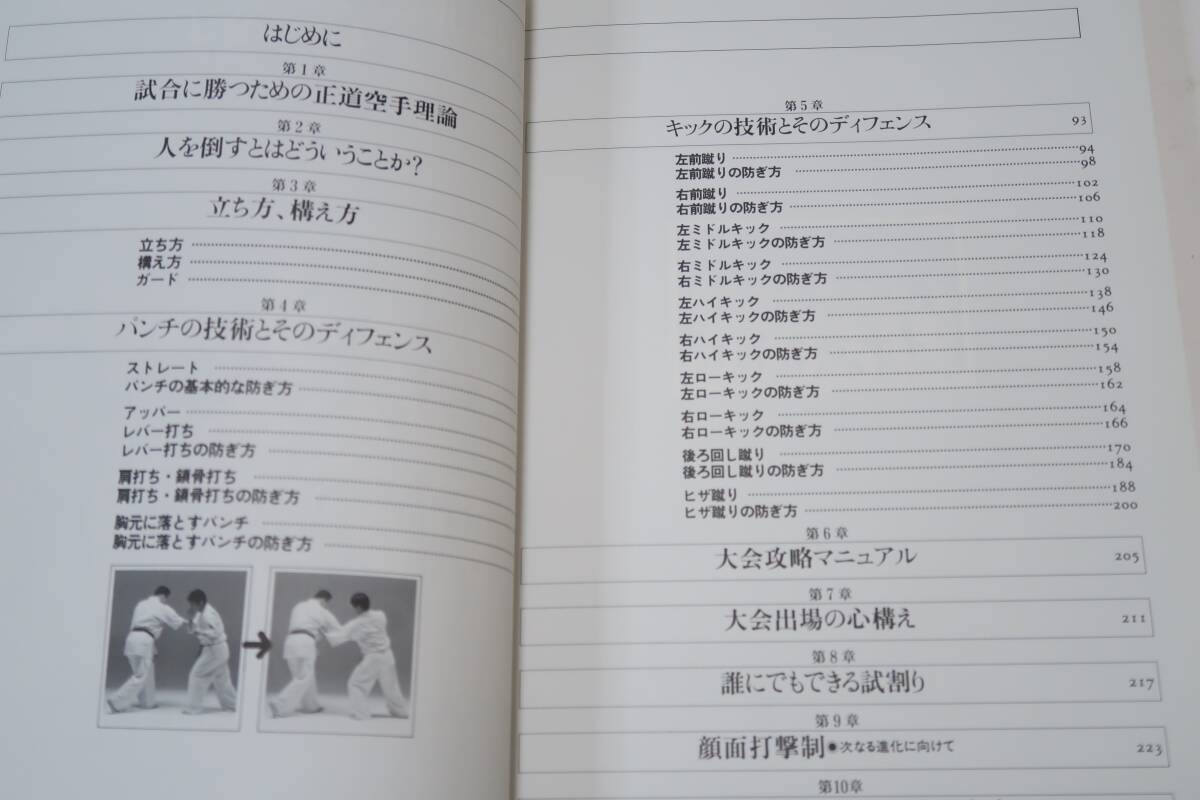 はじめに
第1章
試合に勝つための正道空手理論
第2章
人を倒すとはどういうことか?
第3章
立ち方、構え方
立ち方
構え方
ガード
第4章
パンチの技術とそのディフェンス
ストレート
パンチの基本的な防ぎ方
アッパー
レバー打ち
レバー打ちの防ぎ方
肩打ち・鎖骨打ち
肩打ち・鎖骨打ちの防ぎ方
胸元に落とすパンチ
胸元に落とすパンチの防ぎ方
第5章
キックの技術とそのディフェンス 93
左前蹴り 94
左前蹴りの防ぎ方 98
右前蹴り 102
右前蹴りの防ぎ方 106
左ミドルキック 110
左ミドルキックの防ぎ方 118
右ミドルキック 124
右ミドルキックの防ぎ方 130
左ハイキック 138
左ハイキックの防ぎ方 146
右ハイキック 150
右ハイキックの防ぎ方 154
左ローキック 158
左ローキックの防ぎ方 162
右ローキック 164
右ローキックの防ぎ方 166
後ろ回し蹴り 170
後ろ回し蹴りの防ぎ方 184
ヒザ蹴り 188
ヒザ蹴りの防ぎ方 200
第6章
大会攻略マニュアル 205
第7章
大会出場の心構え 211
第8章
誰にでもできる試割り 217
第9章
顔面打撃制●次なる進化に向けて 223
第10章